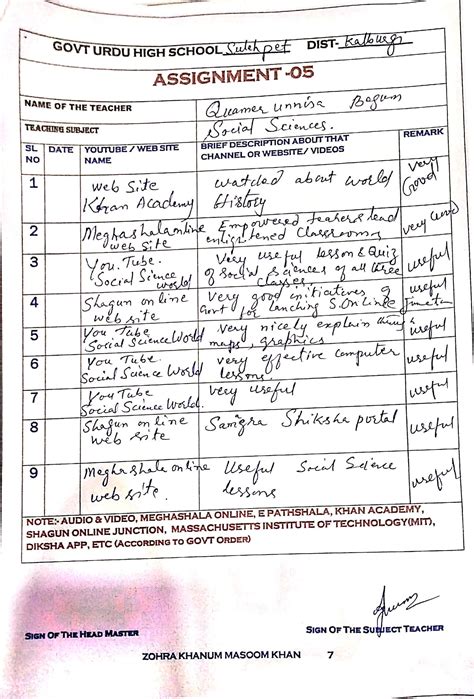 GOVT URDU HIGH SCHOOL Sulehpet DIST- Kalburgi
ASSIGNMENT -05
NAME OF THE TEACHER Quamer unnisa Begum
TEACHING SUBJECT Social Sciences.
SL NO DATE YOUTUBE / WEB SITE NAME BRIEF DESCRIPTION ABOUT THAT CHANNEL OR WEBSITE/ VIDEOS REMARK
1 Web Site Khan Academy watched about world History very Good
2 Meghashala online web site Empowered teachers lead enlightened Classrooms very Good
3 You.Tube. Social Science world Very useful lesson & Quiz of Social Sciences of all three classes useful
4 Shagun online web site Very good initiatives of Govt for lanching S.Online Junction useful
5 You Tube Social Science World very nicely explain through maps, graphics useful
6 You Tube. Social Science World very effective computer lessons useful
7 You Tube Social Science World. very useful useful
8 Shagun online web site Samgra Shiksha portal useful
9 Meghashala online web site. Useful Social Science lessons useful
NOTE:- AUDIO & VIDEO, MEGHASHALA ONLINE, E PATHSHALA, KHAN ACADEMY,
SHAGUN ONLINE JUNCTION, MASSACHUSETTS INSTITUTE OF TECHNOLOGY(MIT),
DIKSHA APP, ETC (ACCORDING TO GOVT ORDER)
SIGN OF THE HEAD MASTER SIGN OF THE SUBJECT TEACHER
ZOHRA KHANUM MASOOM KHAN 7